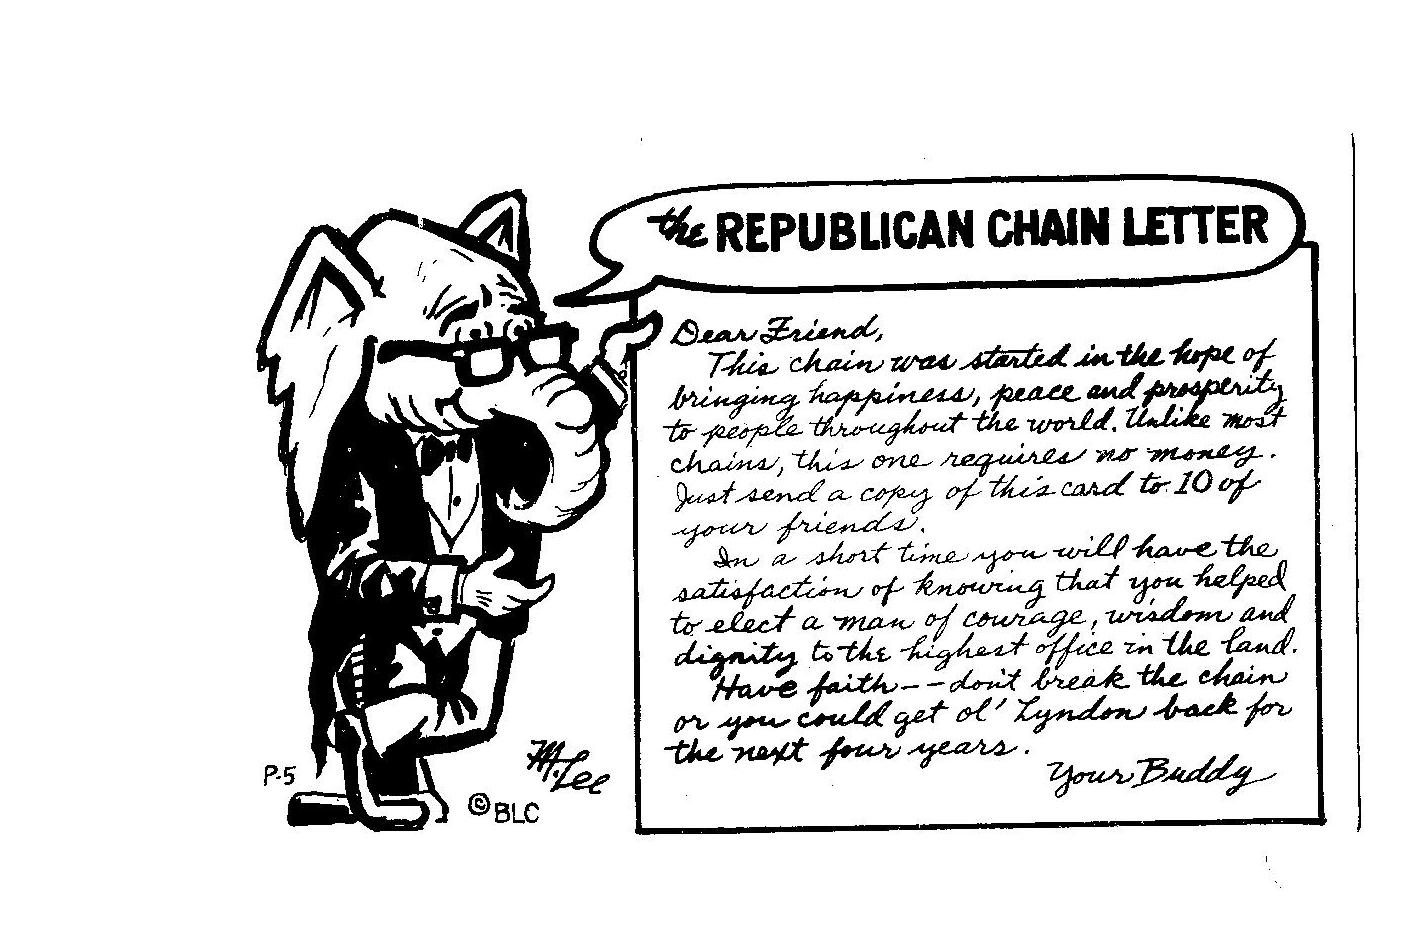 the REPUBLICAN CHAIN LETTER
Dear Friend,
This chain was started in the hope of
bringing happiness, peace and prosperity
to people throughout the world. Unlike most
chains, this one requires no money.
Just send a copy of this card to 10 of
your friends.
In a short time you will have the
satisfaction of knowing that you helped
to elect a man of courage, wisdom and
dignity to the highest office in the land.
Have faith -- don't break the chain
or you could get ol' Lyndon back for
the next four years.
Your Buddy
M. Lee
P-5
© BLC